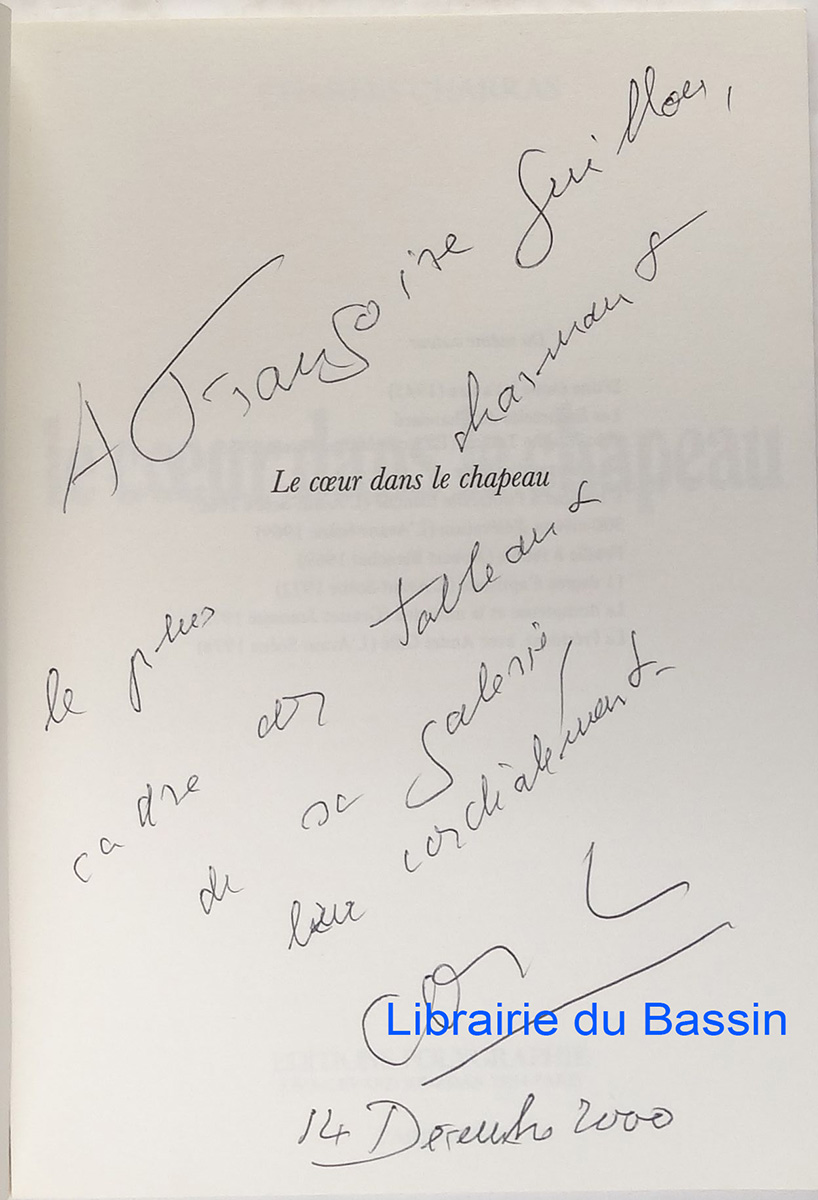 A Françoise Guillou,
le plus charmant
Le cœur dans le chapeau
cadre des tableaux
de sa galerie
bien cordialement
Librairie du Bassin
14 Decembre 2000